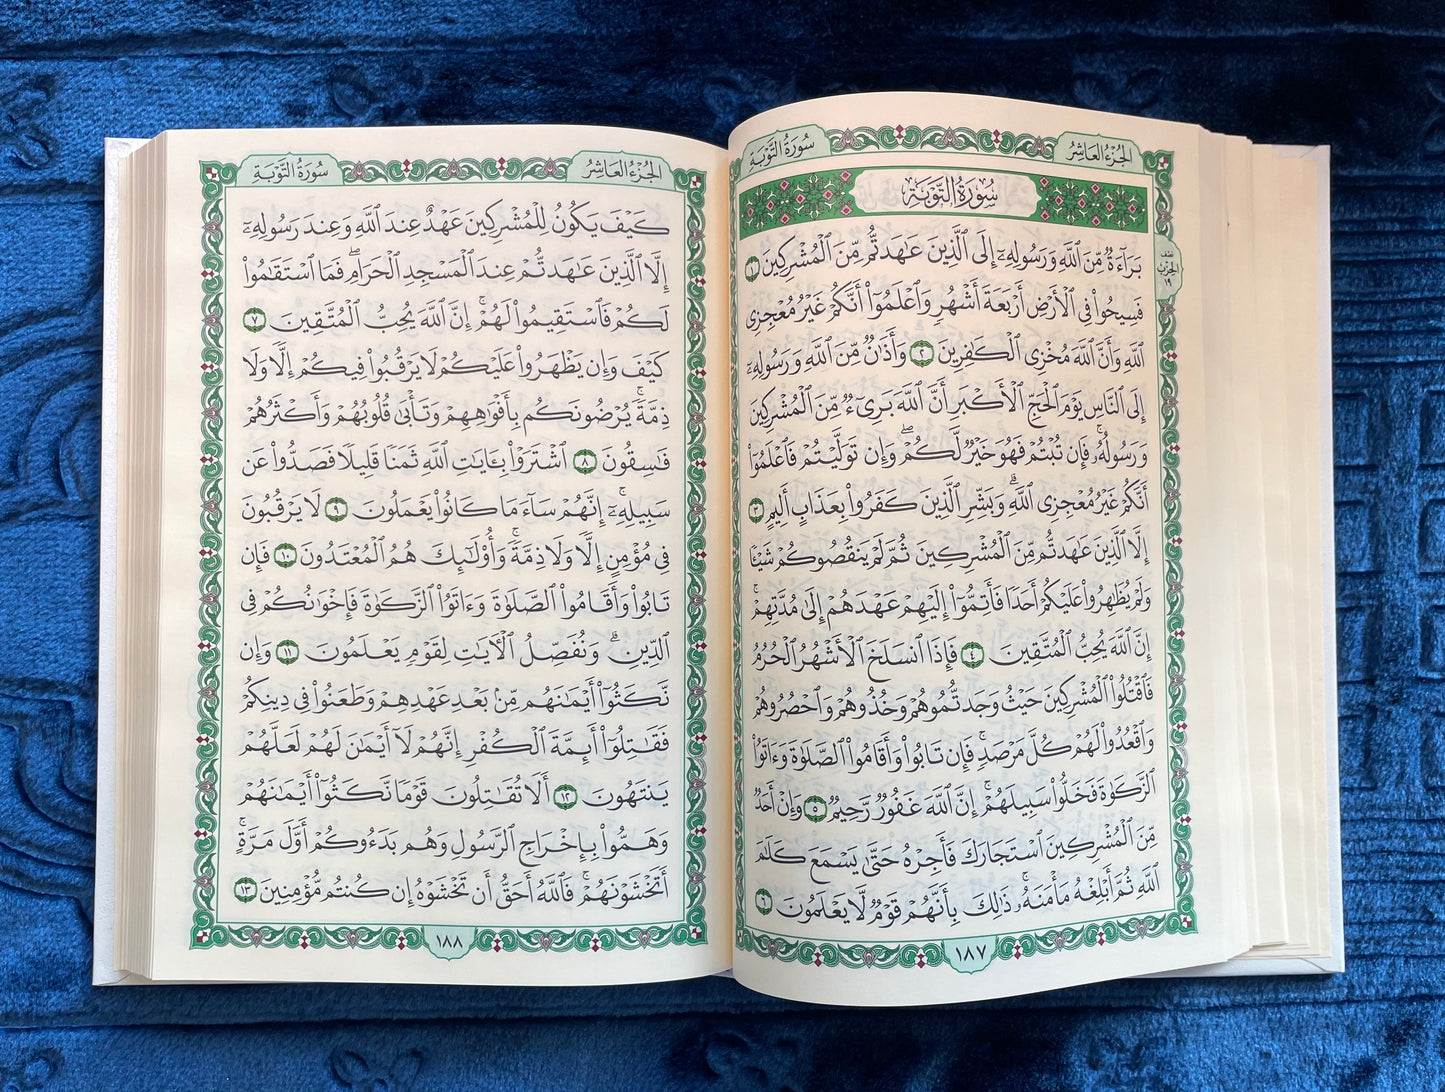 الجُزْءُ العَاشِرُ
سُورَةُ التَّوْبَةِ
سُورَةُ التَّوْبَةِ
بَرَآءَةٌ مِّنَ ٱللَّهِ وَرَسُولِهِۦٓ إِلَى ٱلَّذِينَ عَٰهَدتُّم مِّنَ ٱلْمُشْرِكِينَ ١
نصف
الحزب
١٩
فَسِيحُوا۟ فِى ٱلْأَرْضِ أَرْبَعَةَ أَشْهُرٍ وَٱعْلَمُوٓا۟ أَنَّكُمْ غَيْرُ مُعْجِزِى
ٱللَّهِ وَأَنَّ ٱللَّهَ مُخْزِى ٱلْكَٰفِرِينَ ٢ وَأَذَٰنٌ مِّنَ ٱللَّهِ وَرَسُولِهِۦٓ
إِلَى ٱلنَّاسِ يَوْمَ ٱلْحَجِّ ٱلْأَكْبَرِ أَنَّ ٱللَّهَ بَرِىٓءٌ مِّنَ ٱلْمُشْرِكِينَ
وَرَسُولُهُۥ ۚ فَإِن تُبْتُمْ فَهُوَ خَيْرٌ لَّكُمْ ۖ وَإِن تَوَلَّيْتُمْ فَٱعْلَمُوٓا۟
أَنَّكُمْ غَيْرُ مُعْجِزِى ٱللَّهِ ۗ وَبَشِّرِ ٱلَّذِينَ كَفَرُوا۟ بِعَذَابٍ أَلِيمٍ ٣
إِلَّا ٱلَّذِينَ عَٰهَدتُّم مِّنَ ٱلْمُشْرِكِينَ ثُمَّ لَمْ يَنقُصُوكُمْ شَيْـًٔا
وَلَمْ يُظَٰهِرُوا۟ عَلَيْكُمْ أَحَدًا فَأَتِمُّوٓا۟ إِلَيْهِمْ عَهْدَهُمْ إِلَىٰ مُدَّتِهِمْ ۚ
إِنَّ ٱللَّهَ يُحِبُّ ٱلْمُتَّقِينَ ٤ فَإِذَا ٱنسَلَخَ ٱلْأَشْهُرُ ٱلْحُرُمُ
فَٱقْتُلُوا۟ ٱلْمُشْرِكِينَ حَيْثُ وَجَدتُّمُوهُمْ وَخُذُوهُمْ وَٱحْصُرُوهُمْ
وَٱقْعُدُوا۟ لَهُمْ كُلَّ مَرْصَدٍ ۚ فَإِن تَابُوا۟ وَأَقَامُوا۟ ٱلصَّلَوٰةَ وَءَاتَوُا۟
ٱلزَّكَوٰةَ فَخَلُّوا۟ سَبِيلَهُمْ ۚ إِنَّ ٱللَّهَ غَفُورٌ رَّحِيمٌ ٥ وَإِنْ أَحَدٌ
مِّنَ ٱلْمُشْرِكِينَ ٱسْتَجَارَكَ فَأَجِرْهُ حَتَّىٰ يَسْمَعَ كَلَٰمَ
ٱللَّهِ ثُمَّ أَبْلِغْهُ مَأْمَنَهُۥ ۚ ذَٰلِكَ بِأَنَّهُمْ قَوْمٌ لَّا يَعْلَمُونَ ٦
١٨٧
الجُزْءُ العَاشِرُ
سُورَةُ التَّوْبَةِ
كَيْفَ يَكُونُ لِلْمُشْرِكِينَ عَهْدٌ عِندَ ٱللَّهِ وَعِندَ رَسُولِهِۦٓ
إِلَّا ٱلَّذِينَ عَٰهَدتُّمْ عِندَ ٱلْمَسْجِدِ ٱلْحَرَامِ ۖ فَمَا ٱسْتَقَٰمُوا۟
لَكُمْ فَٱسْتَقِيمُوا۟ لَهُمْ ۚ إِنَّ ٱللَّهَ يُحِبُّ ٱلْمُتَّقِينَ ٧
كَيْفَ وَإِن يَظْهَرُوا۟ عَلَيْكُمْ لَا يَرْقُبُوا۟ فِيكُمْ إِلًّا وَلَا
ذِمَّةً ۚ يُرْضُونَكُم بِأَفْوَٰهِهِمْ وَتَأْبَىٰ قُلُوبُهُمْ وَأَكْثَرُهُمْ
فَٰسِقُونَ ٨ ٱشْتَرَوْا۟ بِـَٔايَٰتِ ٱللَّهِ ثَمَنًا قَلِيلًا فَصَدُّوا۟ عَن
سَبِيلِهِۦٓ ۚ إِنَّهُمْ سَآءَ مَا كَانُوا۟ يَعْمَلُونَ ٩ لَا يَرْقُبُونَ
فِى مُؤْمِنٍ إِلًّا وَلَا ذِمَّةً ۚ وَأُو۟لَٰٓئِكَ هُمُ ٱلْمُعْتَدُونَ ١٠ فَإِن
تَابُوا۟ وَأَقَامُوا۟ ٱلصَّلَوٰةَ وَءَاتَوُا۟ ٱلزَّكَوٰةَ فَإِخْوَٰنُكُمْ فِى
ٱلدِّينِ ۗ وَنُفَصِّلُ ٱلْـَٔايَٰتِ لِقَوْمٍ يَعْلَمُونَ ١١ وَإِن
نَّكَثُوٓا۟ أَيْمَٰنَهُم مِّنۢ بَعْدِ عَهْدِهِمْ وَطَعَنُوا۟ فِى دِينِكُمْ
فَقَٰتِلُوٓا۟ أَئِمَّةَ ٱلْكُفْرِ ۙ إِنَّهُمْ لَآ أَيْمَٰنَ لَهُمْ لَعَلَّهُمْ
يَنتَهُونَ ١٢ أَلَا تُقَٰتِلُونَ قَوْمًا نَّكَثُوٓا۟ أَيْمَٰنَهُمْ
وَهَمُّوا۟ بِإِخْرَاجِ ٱلرَّسُولِ وَهُم بَدَءُوكُمْ أَوَّلَ مَرَّةٍ ۚ
أَتَخْشَوْنَهُمْ ۚ فَٱللَّهُ أَحَقُّ أَن تَخْشَوْهُ إِن كُنتُم مُّؤْمِنِينَ ١٣
١٨٨